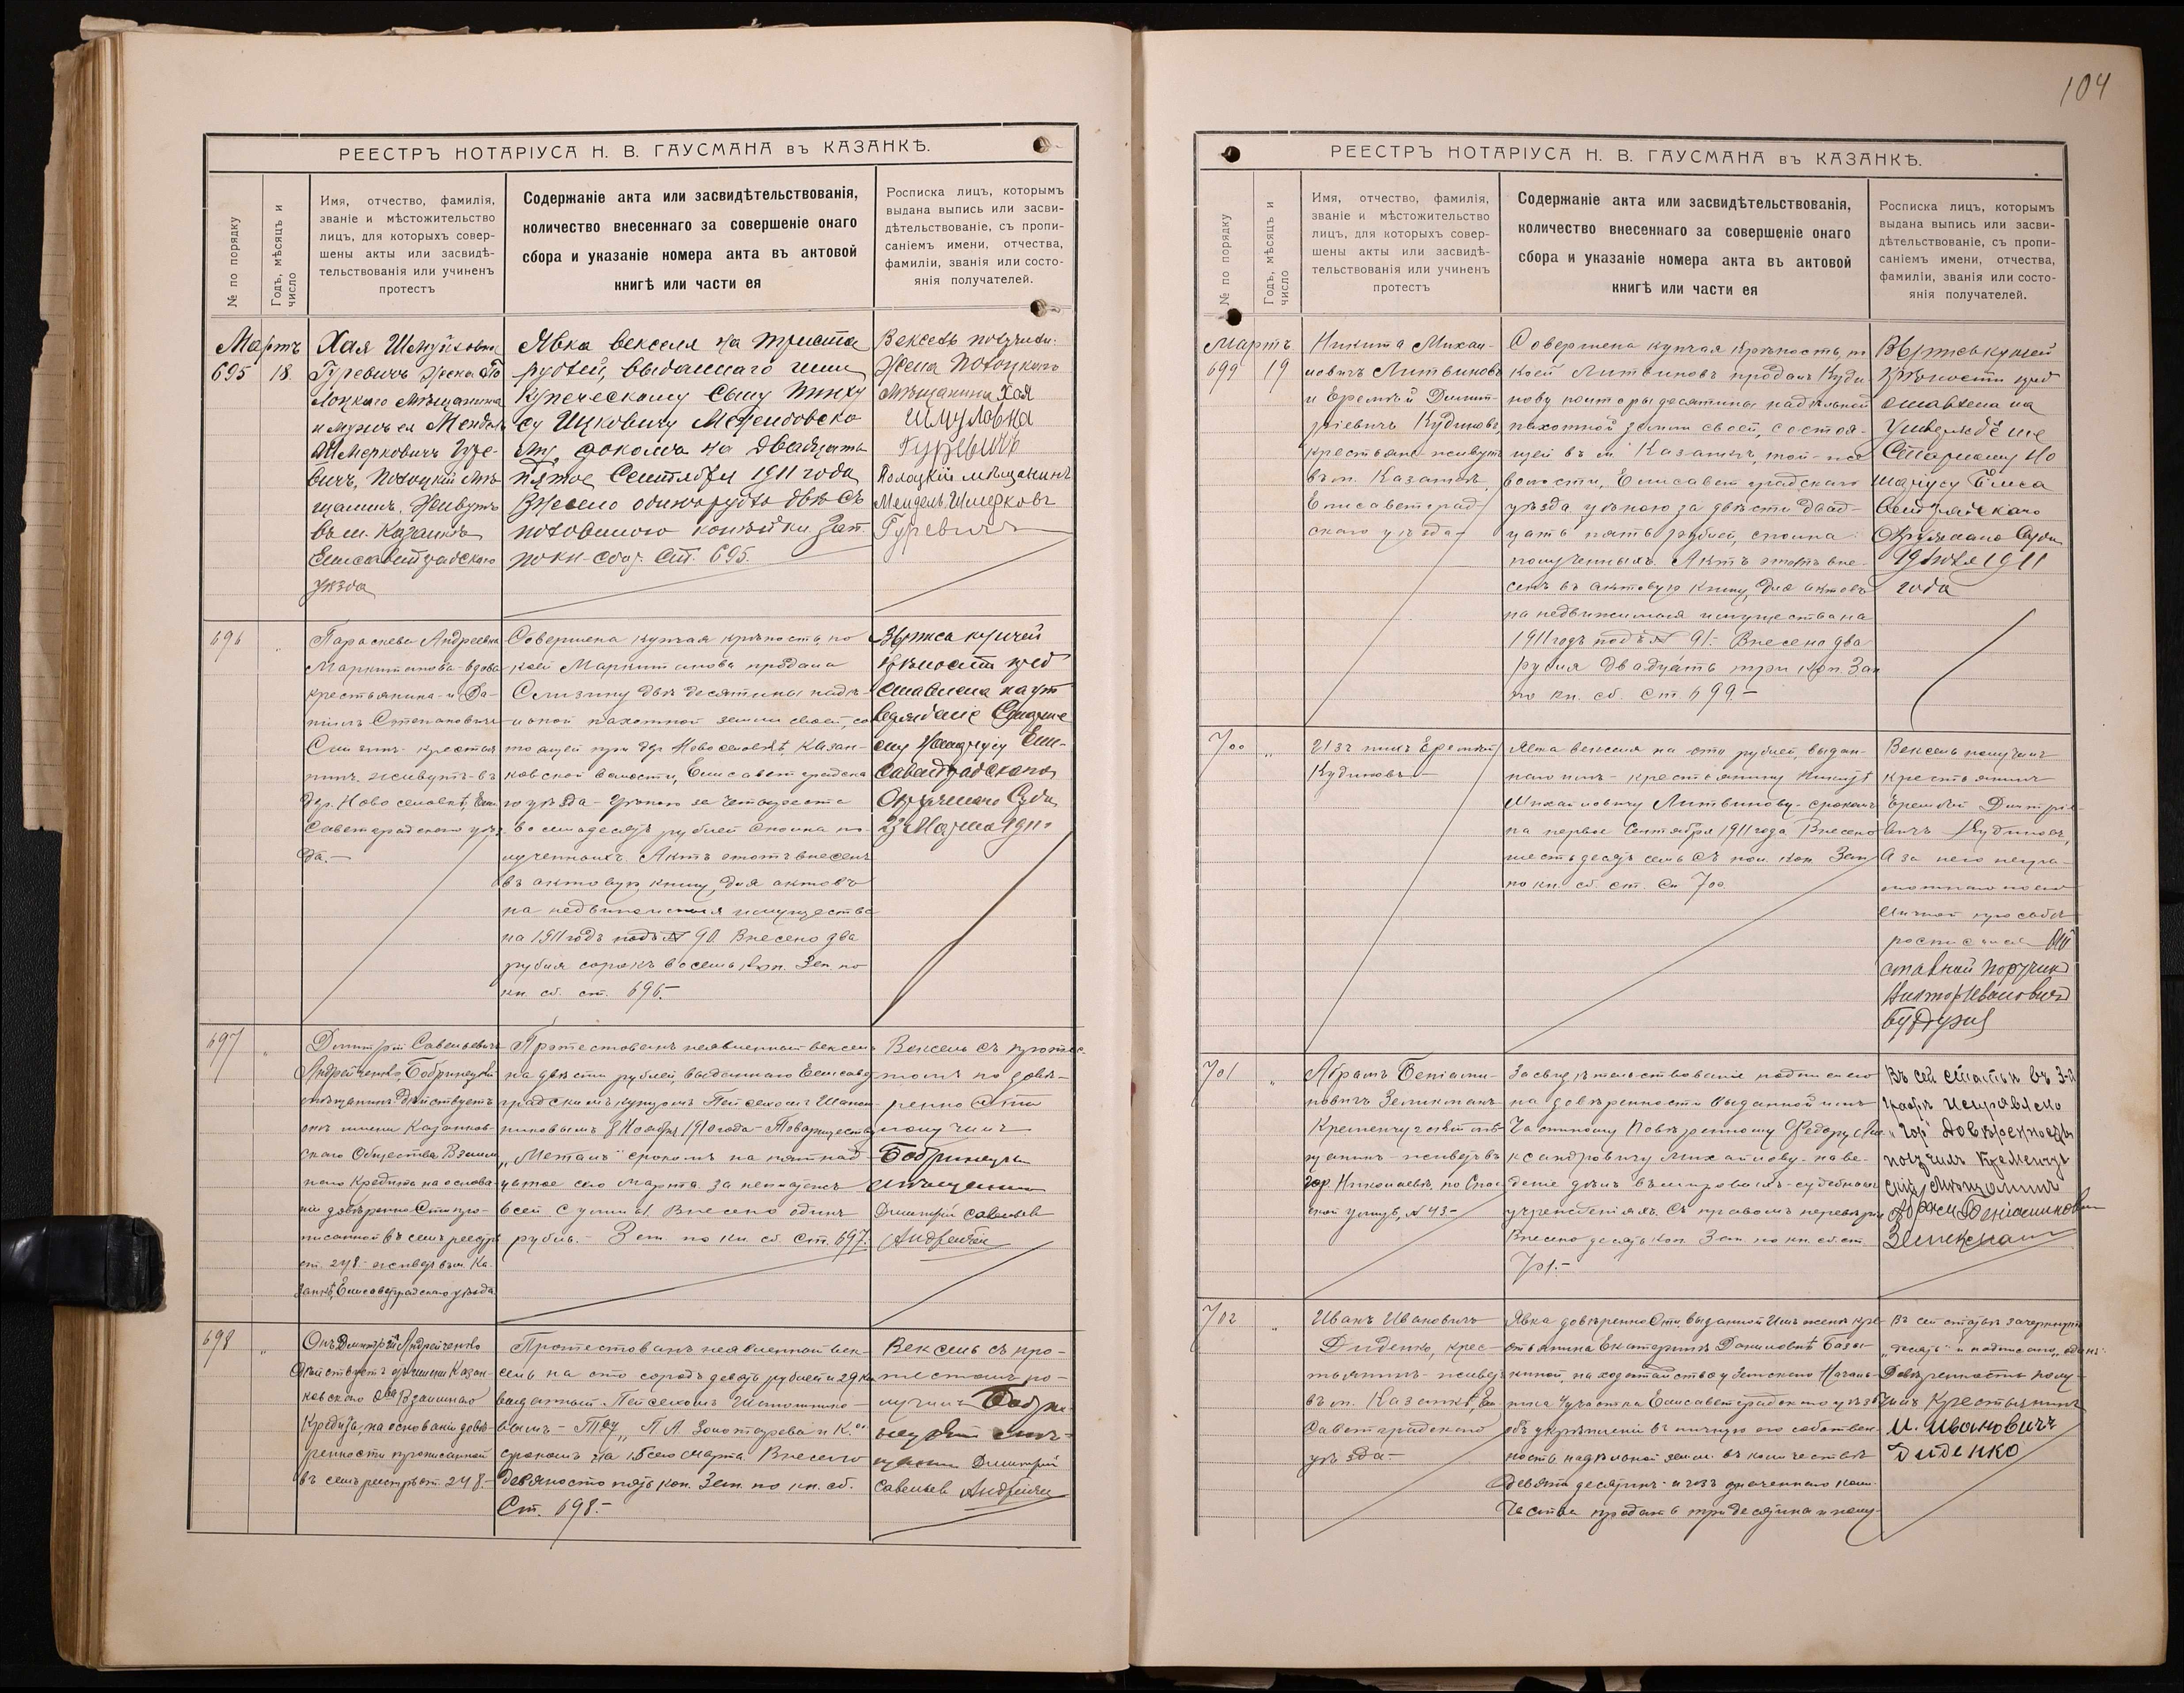 РЕЕСТРЪ НОТАРІУСА Н. В. ГАУСМАНА въ КАЗАНКѢ.
№ по порядку
Годъ, мѣсяцъ и число
Имя, отчество, фамилія,
званіе и мѣстожительство
лицъ, для которыхъ совер-
шены акты или засвидѣ-
тельствованія или учиненъ
протестъ
Содержаніе акта или засвидѣтельствованія,
количество внесеннаго за совершеніе онаго
сбора и указаніе номера акта въ актовой
книгѣ или части ея
Росписка лицъ, которымъ
выдана выпись или засви-
дѣтельствованіе, съ пропи-
саніемъ имени, отчества,
фамиліи, званія или состо-
янія получателей.
Мартъ
695 18
Хая Шмуйловна
Гуревичъ жена По
лоцкаго Мѣщанина
и мужъ ея Мендель
Шмерковичъ Гуре-
вичъ, Полоцкій Мѣ
щанинъ. Живутъ
въ м. Казанкѣ
Елисаветградскаго
уѣзда
Явка векселя на триста
рублей, выданнаго ими
Купеческому Сыну Пинху
су Ицковичу
му, срокомъ на двадцать
пятое Сентября 1911 года
Внесено одинъ рубль двѣ съ
половиною копѣйки Зап.
по кн. сбор. ст. 695.
Вексель получили:
Жена Полоцкаго
Мѣщанина Хая
Шмуловна
Гуревичъ
Полоцкій мѣщанинъ
Мендель Шмерковъ
Гуревичъ
696 "
Параскева Андреевна
Маркитанова - вдова
крестьянина и Да-
ніилъ Степановичъ
крестья
нинъ живутъ въ
дер. Новоселовкѣ, Ели
саветградскаго уѣз-
да.—
Совершена купчая крѣпость, по
коей Маркитанова продала
двѣ десятины надѣ-
льной пахотной земли своей, со
тоящей при дер. Новоселовкѣ Казан-
ковской волости, Елисаветградска
го уѣзда - цѣною за четыреста
восемьдесятъ рублей сполна по-
лученныхъ. Актъ этотъ внесенъ
въ актовую книгу, для актовъ
на недвижимыя имущества
на 1911 годъ подъ № 90. Внесено два
рубля сорокъ восемь коп. Зап. по
кн. сб. ст. 696.—
Выпись купчей
крѣпости пред
ставлена на ут
вержденіе Старше
му Нотаріусу Ели-
саветградскаго
Окружнаго Суда
23 Марта 1911 г
697 "
Дмитрій Савельевичъ
Андрейченко, Бобринецкій
мѣщанинъ. Дѣйствуетъ
онъ имени Казанков-
скаго Общества Взаим
наго Кредита на основа-
ніи довѣренности про-
писанной въ семъ реестрѣ
ст. 248.- живетъ въ м. Ка-
занкѣ, Елисаветградскаго уѣзда
Протестованъ неявленный вексель
на двѣсти рублей, выданнаго Елисавет
градскимъ купцомъ Пейсахомъ Шапош-
никовымъ 8 Ноября 1910 года - Товариществу
„Металъ" срокомъ на пятнад
цатое сего марта за неплатежъ
всей суммы. Внесено одинъ
рубль. - Зап. по кн. сб. ст. 697.
Вексель съ протес-
томъ по довѣ-
ренности
получилъ
Бобринецкій
мѣщанинъ
Дмитрій Савельевъ
Андрейченко
698 "
Онъ Дмитрій Андрейченко
Дѣйствуетъ отъ имени Казан-
ковскаго О-ва Взаимнаго
Кредита, на основаніи довѣ-
ренности прописанной
въ семъ реестрѣ ст. 248.-
Протестованъ неявленный век-
сель на сто сорокъ девять рублей и 29 ко
выданный Пейсахомъ Шапошнико-
вымъ - Т-ву „П. А. Золотарева и К.о"
срокомъ на 15 сего марта. Внесено
девяносто пять коп. Зап. по кн. сб.
Ст. 698.-
Вексель съ про-
тестомъ по-
лучилъ Бобри
нецкій мѣ-
щанинъ Дмитрій
Савельевъ Андрейченко
104
РЕЕСТРЪ НОТАРІУСА Н. В. ГАУСМАНА въ КАЗАНКѢ.
№ по порядку
Годъ, мѣсяцъ и число
Имя, отчество, фамилія,
званіе и мѣстожительство
лицъ, для которыхъ совер-
шены акты или засвидѣ-
тельствованія или учиненъ
протестъ
Содержаніе акта или засвидѣтельствованія,
количество внесеннаго за совершеніе онаго
сбора и указаніе номера акта въ актовой
книгѣ или части ея
Росписка лицъ, которымъ
выдана выпись или засви-
дѣтельствованіе, съ пропи-
саніемъ имени, отчества,
фамиліи, званія или состо-
янія получателей.
Мартъ
699 19
Никита Михай-
ловичъ Литвиновъ
и Еремѣй Дмит-
ріевичъ Кудиновъ,
крестьяне - живутъ
въ м. Казанкѣ,
Елисаветград-
скаго уѣзда -
Совершена купчая крѣпость, по
коей Литвиновъ продалъ Куди
нову полторы десятины надѣльной
пахотной земли своей, состоя-
щей въ м. Казанкѣ, той-же
волости, Елисаветградскаго
уѣзда цѣною за двѣсти двад-
цать пять рублей, сполна
полученныхъ. Актъ этотъ вне-
сенъ въ актовую книгу, для актовъ
на недвижимыя имущества на
1911 годъ подъ № 91.- Внесено два
рубля двадцать три коп. Зап
по кн. сб. ст 699 -
Выпись купчей
крѣпости пред
ставлена на
утвержденіе
Старшему Но
таріусу Елиса
ветградскаго
Окружнаго Суда
19 1911
года
700 "
Еремѣй
Кудиновъ -
Явка векселя на сто рублей, выдан-
наго имъ - крестьянину Никитѣ
Михайловичу Литвинову - срокомъ
на первое Сентября 1911 года. Внесено
шестьдесятъ семь съ пол. коп. Зап
по кн. сб. ст. 700.
Вексель получилъ
крестьянинъ
Еремѣй Дмитріе-
вичъ Кудиновъ,
а за него негра-
мотнаго по его
личной просьбѣ
росписался От
ставной Поручикъ
Викторъ Ивановичъ
701 "
Абрамъ Беніами-
новичъ Зеликманъ
Кременчугскій мѣ-
щанинъ - живетъ въ
гор. Николаевѣ, по Спас-
ской улицѣ, № 43 -
Засвидѣтельствованіе подписи его
на довѣренности выданной имъ
Частному Повѣренному Федору Але
ксандровичу Михайлову - на ве-
деніе дѣлъ въ мировыхъ - судебныхъ
учрежденіяхъ. Съ правомъ передовѣрія
Внесено десять коп. Зап. по кн. сб. ст.
701.-
Въ сей статьи въ 3-й
графѣ исправлено
„гор" довѣренность
получилъ Кременчуг
скій Мѣщанинъ
Абрамъ Беніаминовичъ
Зеликманъ
702 "
Иванъ Ивановичъ
Диденко, крес-
тьянинъ - живетъ
въ м. Казанкѣ, Ели
саветградскаго
уѣзда -
Явка довѣренности, выданной имъ женѣ кре-
стьянина Екатеринѣ Даниловнѣ
на ходатайство у Земскаго Началь-
ника участка Елисаветградскаго уѣзда
объ укрѣпленіи въ личную его собствен-
ность надѣльной земли въ количествѣ
девяти десятинъ - и изъ означеннаго коли-
чества продать три десятины и полу-
Въ сей статьѣ зачеркнуто
„десять" и надписано „одинъ"
Довѣренность полу-
чилъ Крестьянинъ
И. Ивановичъ
Диденко